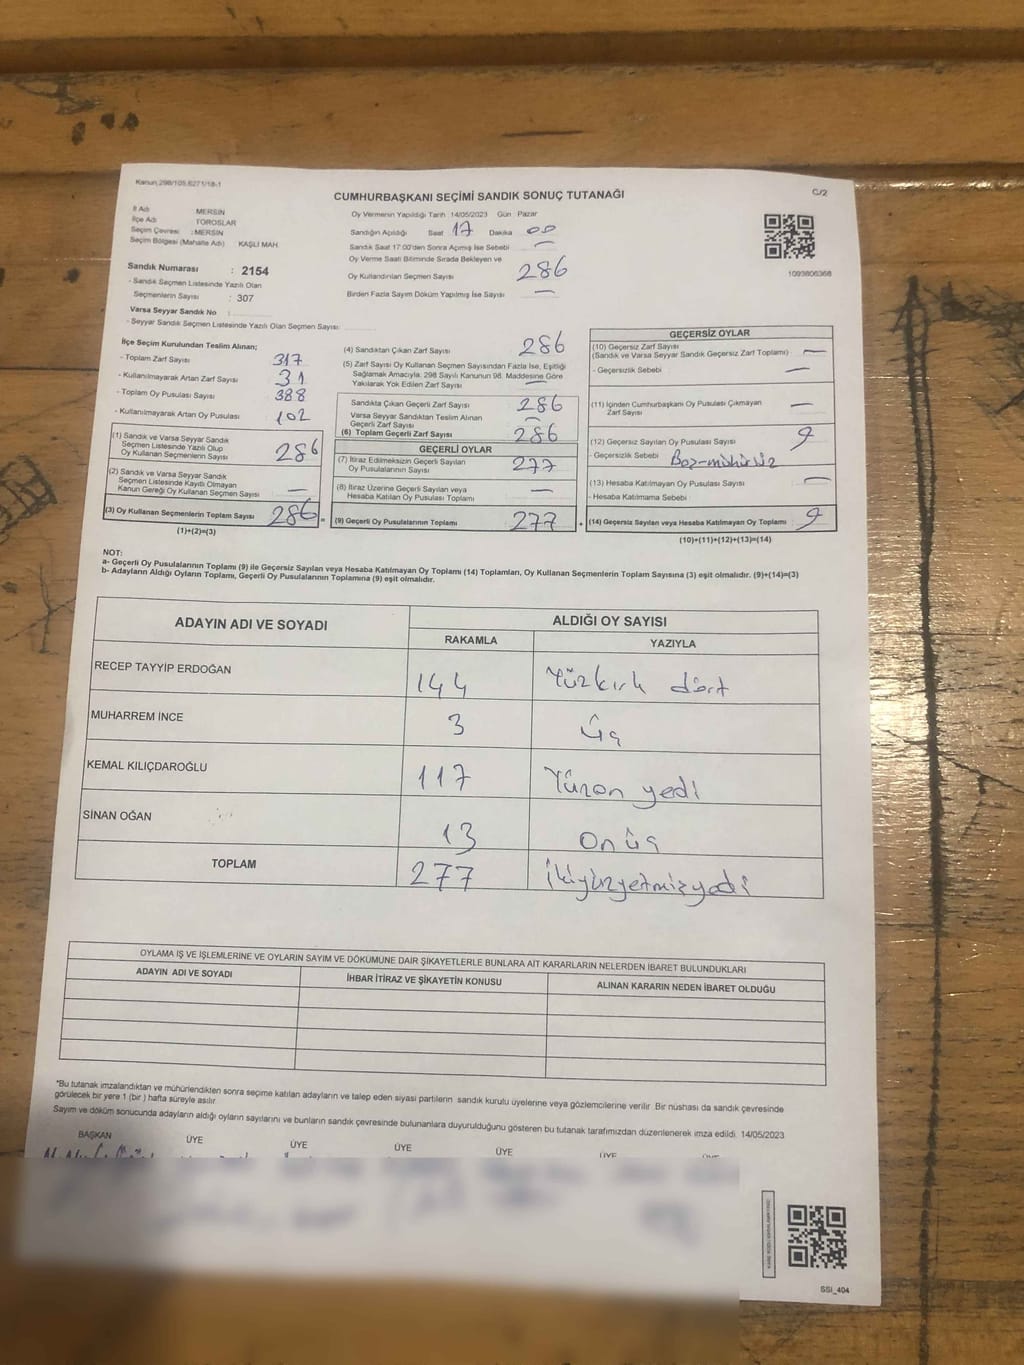 Kanun:298/105,6271/18-1
C-/2
CUMHURBAŞKANI SEÇİMİ SANDIK SONUÇ TUTANAĞI
İl Adı : MERSİN
İlçe Adı : TOROSLAR
Seçim Çevresi : MERSİN
Seçim Bölgesi (Mahalle Adı) KAŞLI MAH.
Sandık Numarası : 2154
- Sandık Seçmen Listesinde Yazılı Olan
Seçmenlerin Sayısı : 307
Varsa Seyyar Sandık No :
- Seyyar Sandık Seçmen Listesinde Yazılı Olan Seçmen Sayısı:
Oy Vermenin Yapıldığı Tarih 14/05/2023 Gün : Pazar
Sandığın Açıldığı Saat 17 Dakika 00
Sandık Saat 17:00'den Sonra Açılmış İse Sebebi —
Oy Verme Saati Bitiminde Sırada Bekleyen ve
Oy Kullandırılan Seçmen Sayısı 286
Birden Fazla Sayım Döküm Yapılmış İse Sayısı —
1093806368
İlçe Seçim Kurulundan Teslim Alınan;
- Toplam Zarf Sayısı 317
- Kullanılmayarak Artan Zarf Sayısı 31
- Toplam Oy Pusulası Sayısı 388
- Kullanılmayarak Artan Oy Pusulası 102
(1) Sandık ve Varsa Seyyar Sandık
Seçmen Listesinde Yazılı Olup
Oy Kullanan Seçmenlerin Sayısı 286
(2) Sandık ve Varsa Seyyar Sandık
Seçmen Listesinde Kayıtlı Olmayan
Kanun Gereği Oy Kullanan Seçmen Sayısı —
(3) Oy Kullanan Seçmenlerin Toplam Sayısı 286 =
(1)+(2)=(3)
(4) Sandıktan Çıkan Zarf Sayısı 286
(5) Zarf Sayısı Oy Kullanan Seçmen Sayısından Fazla İse, Eşitliği
Sağlamak Amacıyla, 298 Sayılı Kanunun 98. Maddesine Göre
Yakılarak Yok Edilen Zarf Sayısı —
Sandıkta Çıkan Geçerli Zarf Sayısı 286
Varsa Seyyar Sandıktan Teslim Alınan
Geçerli Zarf Sayısı —
(6) Toplam Geçerli Zarf Sayısı 286
GEÇERLİ OYLAR
(7) İtiraz Edilmeksizin Geçerli Sayılan
Oy Pusulalarının Sayısı 277
(8) İtiraz Üzerine Geçerli Sayılan veya
Hesaba Katılan Oy Pusulası Toplamı —
(9) Geçerli Oy Pusulalarının Toplamı 277 +
GEÇERSİZ OYLAR
(10) Geçersiz Zarf Sayısı
(Sandık ve Varsa Seyyar Sandık Geçersiz Zarf Toplamı) —
- Geçersizlik Sebebi —
(11) İçinden Cumhurbaşkanı Oy Pusulası Çıkmayan
Zarf Sayısı —
(12) Geçersiz Sayılan Oy Pusulası Sayısı 9
- Geçersizlik Sebebi Boş-mühürsüz
(13) Hesaba Katılmayan Oy Pusulası Sayısı —
- Hesaba Katılmama Sebebi
(14) Geçersiz Sayılan veya Hesaba Katılmayan Oy Toplamı 9
(10)+(11)+(12)+(13)=(14)
NOT:
a- Geçerli Oy Pusulalarının Toplamı (9) ile Geçersiz Sayılan veya Hesaba Katılmayan Oy Toplamı (14) Toplamları, Oy Kullanan Seçmenlerin Toplam Sayısına (3) eşit olmalıdır. (9)+(14)=(3)
b- Adayların Aldığı Oyların Toplamı, Geçerli Oy Pusulalarının Toplamına (9) eşit olmalıdır.
ADAYIN ADI VE SOYADI ALDIĞI OY SAYISI
RAKAMLA YAZIYLA
RECEP TAYYİP ERDOĞAN 144 Yüzkırk dört
MUHARREM İNCE 3 Üç
KEMAL KILIÇDAROĞLU 117 Yüzon yedi
SİNAN OĞAN 13 On üç
TOPLAM 277 ikiyüzyetmişyedi
OYLAMA İŞ VE İŞLEMLERİNE VE OYLARIN SAYIM VE DÖKÜMÜNE DAİR ŞİKAYETLERLE BUNLARA AİT KARARLARIN NELERDEN İBARET BULUNDUKLARI
ADAYIN ADI VE SOYADI İHBAR İTİRAZ VE ŞİKAYETİN KONUSU ALINAN KARARIN NEDEN İBARET OLDUĞU
*Bu tutanak imzalandıktan ve mühürlendikten sonra seçime katılan adayların ve talep eden siyasi partilerin sandık kurulu üyelerine veya gözlemcilerine verilir. Bir nüshası da sandık çevresinde
görülecek bir yere 1 (bir ) hafta süreyle asılır.
Sayım ve döküm sonucunda adayların aldığı oyların sayılarını ve bunların sandık çevresinde bulunanlara duyurulduğunu gösteren bu tutanak tarafımızdan düzenlenerek imza edildi. 14/05/2023
BAŞKAN ÜYE ÜYE ÜYE ÜYE ÜYE ÜYE
SSI_404